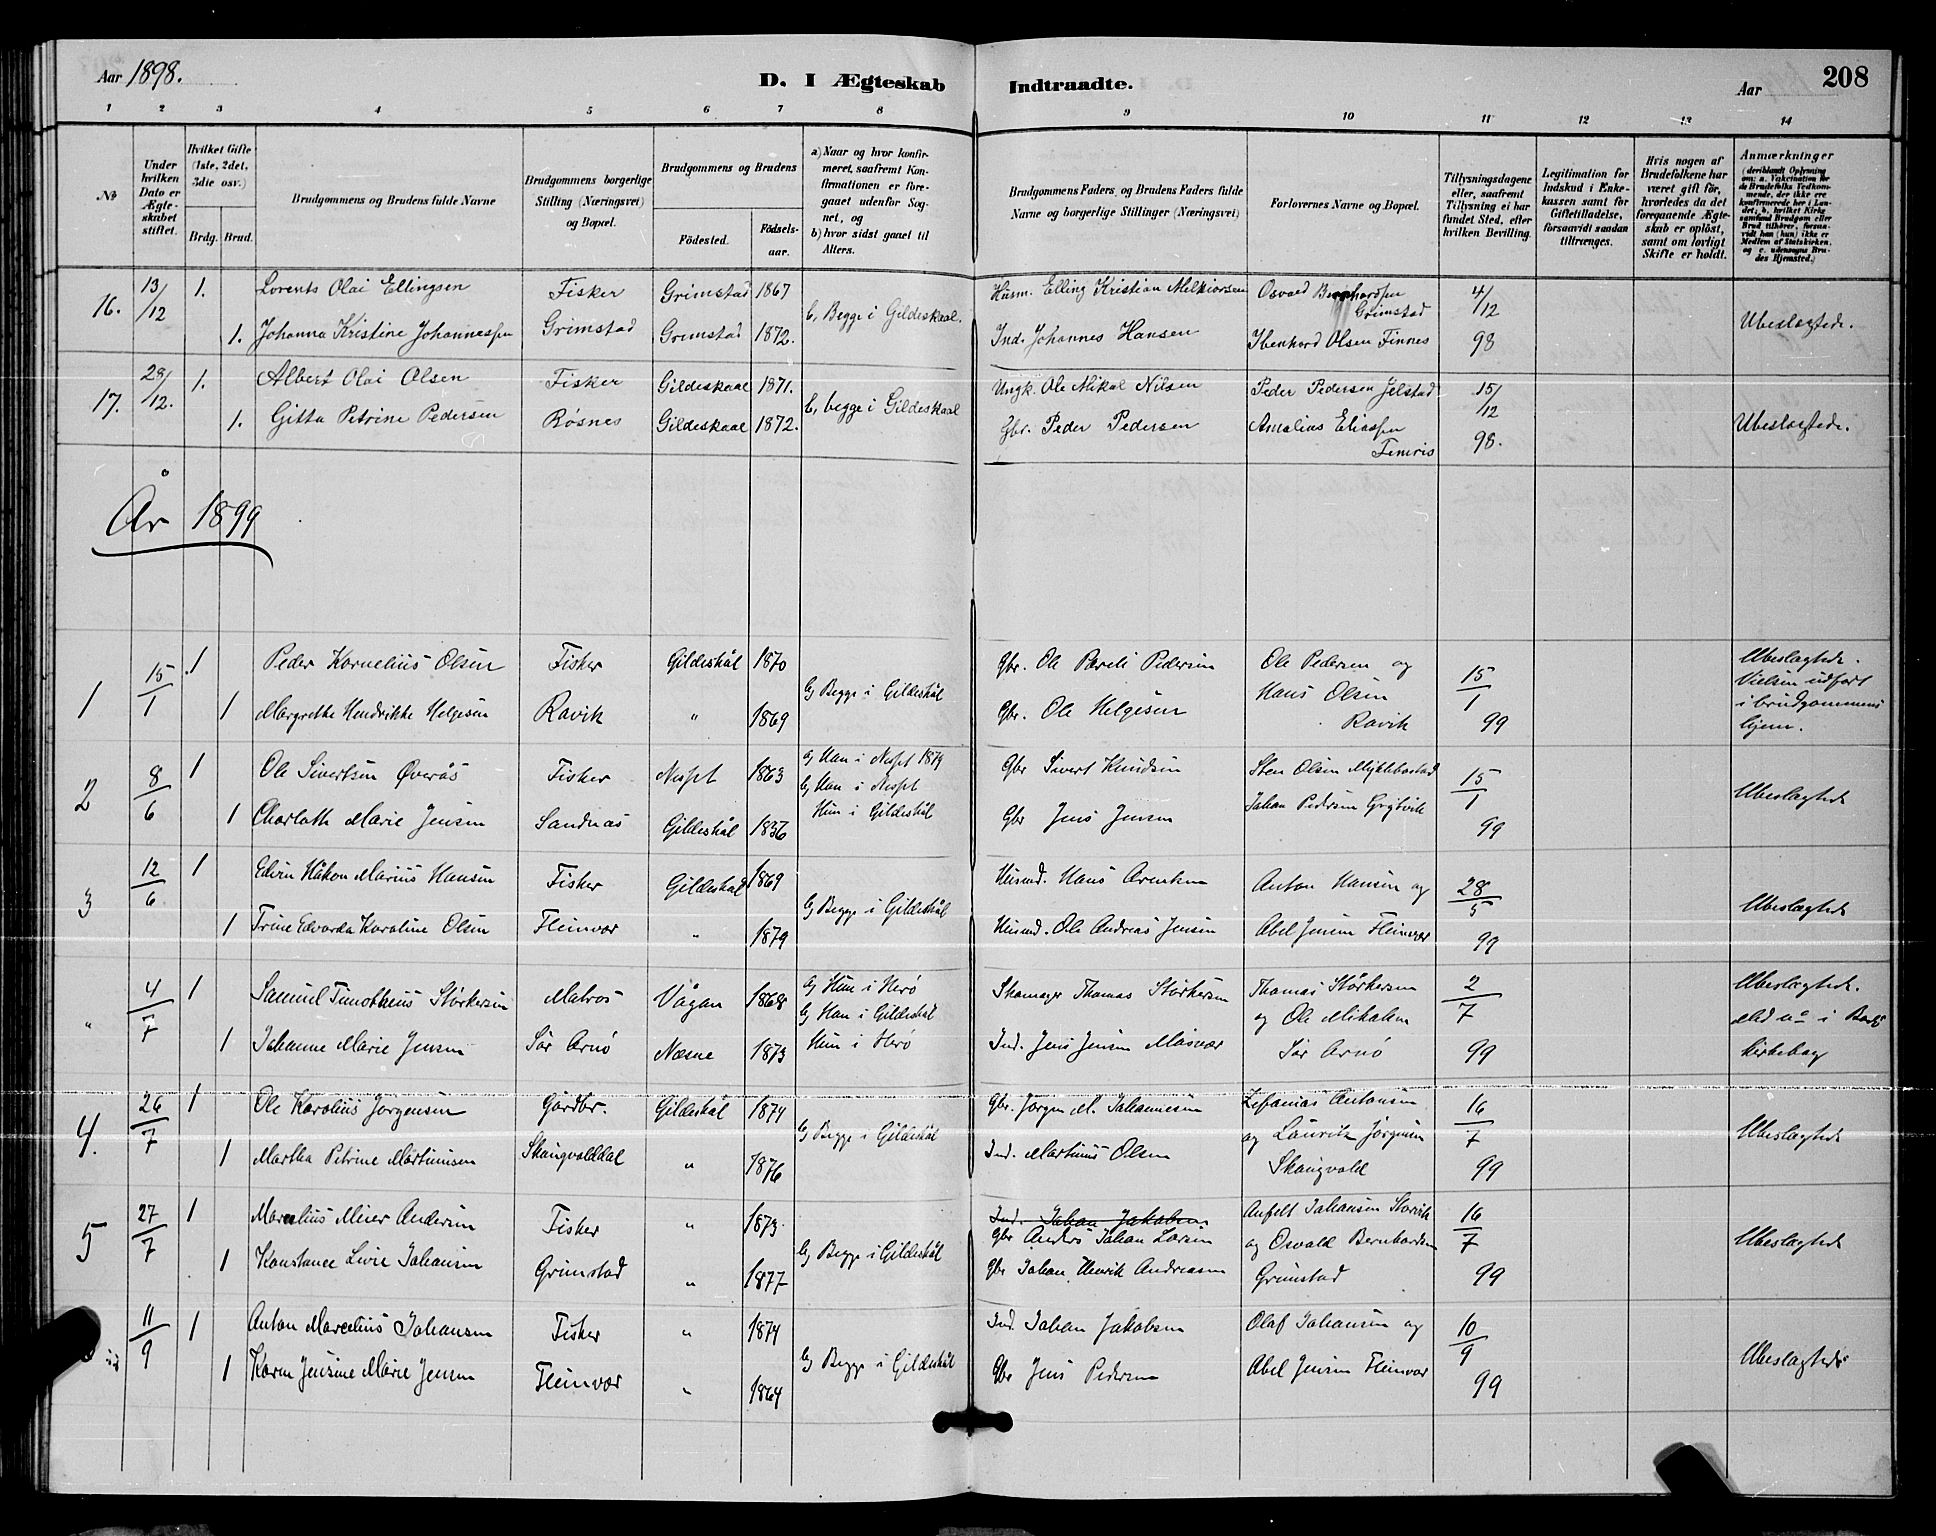 Aar 1898.
D. I Ægteskab Indtraadte.
Aar
208
1 2 3 4 5 6 7 8 9 10 11 12 13 14
No
Under hvilken Dato er Ægteskabet stiftet.
Hvilket Gifte (1ste, 2det, 3die osv.)
Brdg. Brud.
Brudgommens og Brudens fulde Navne
Brudgommens borgerlige Stilling (Næringsvei) og Bopæl.
Brudgommens og Brudens
Födested.
Födselsaar.
a) Naar og hvor konfirmeret, saafremt Konfirmationen er foregaaet udenfor Sognet, og
b) hvor sidst gaaet til Alters.
Brudgommens Faders og Brudens Faders fulde Navne og borgerlige Stillinger (Næringsvei)
Forlovernes Navne og Bopæl.
Tillysningsdagene eller, saafremt Tillysning ei har fundet Sted, efter hvilken Bevilling.
Legitimation for Indskud i Enkekassen samt for Giftetilladelse, forsaavidt saadan tiltrænges.
Hvis nogen af Brudefolkene har været gift för, hvorledes da det foregaaende Ægteskab er oplöst, samt om lovligt Skifte er holdt.
Anmærkninger (deriblandt Oplysning om: a. Vakcination for de Brudefolks Vedkommende, der ikke ere konfirmerede her i Landet; b. hvilket Kirkesamfund Brudgom eller Brud tilhörer, forsaavidt han (hun) ikke er Medlem af Statskirken, og c. udensogns Brudes Hjemsted.)
16. 13/12 1. Lorents Olai Ellingsen Fisker Grimstad 1867 b, Begge i Gildeskaal. Husm. Elling Kristian Melkiorsen Osvald Bernhardsen Grimstad 4/12
1. Johanna Kristine Johannessen Grimstad Grimstad 1872. Ind. Johannes Hansen Ibenhard Olsen Finnes 98 Ubeslægtede.
17. 28/12. 1. Albert Olai Olsen Fisker Gildeskaal 1871. b, begge i Gildeskaal Ungk. Ole Mikal Nilsen Peder Pedersen Jelstad 15/12
1. Gitta Petrine Pedersen Røsnes Gildeskaal 1872. Gbr. Peder Pedersen Amalius Eliassen 98. Ubeslægtede.
År 1899
1 15/1 1 Peder Kornelius Olsen Fisker Gildeskål 1870 b) Begge i Gildeskål Gbr. Ole Pareli Pedersen Ole Pedersen og 15/1 Ubeslægtede.
Vielsen udført
1 Margrethe Hendrikke Helgesen Ravik " 1869 Gbr. Ole Helgesen Hans Olsen Ravik 99 i brudgommens hjem.
2 8/6 1 Ole Sivertsen Øverås Fisker Nesset 1863 a) Han i Nesset 1879 Gbr Sivert Knudsen Sten Olsen Myklebostad 15/1
b) Han i Nesset
1 Charlotte Marie Jensen Sandnæs Gildeskål 1836 Hun i Gildeskål Gbr Jens Jensen Johan Pedersen 99 Ubeslægtede
3 12/6 1 Edvin Håkon Marius Hansen Fisker Gildeskål 1869 b) Begge i Gildeskål Husmd. Hans Arentsen Anton Hansen og 28/5
1 Trine Edvarda Karoline Olsen Fleinvær " 1879 Husmd. Ole Andreas Jensen Abel Jensen Fleinvær 99 Ubeslægtede
" 4/7 1 Samuel Timotheus Størkersen Matros Vågan 1868 a) Hun i Herø Skomager Thomas Størkersen Thomas Størkersen 2/7 Ubeslægtede.
b) Han i Gildeskål og Ole Mikalsen Med no i Bodø
1 Johanne Marie Jensen Sør Arnø Næsne 1873 Hun i Herø Ind. Jens Jensen Måsvær Sør Arnø 99 kirkebog
4. 26/7 1 Ole Karolius Jørgensen Gårdbr. Gildeskål 1874 b) Begge i Gildeskål Gbr. Jørgen M. Johannesen Zefanias Antonsen 16/7
1 Martha Petrine Martinusen Skaugvolddal " 1876 Ind. Martinus Olsen og Lauritz Jørgensen Skaugvold 99 Ubeslægtede
5 27/7 1 Marcelius Meier Andersen Fisker " 1873. b) Begge i Gildeskål Ind. Johan Jakobsen Anfelt Johansen Storvik 16/7
Gbr Anders Johan Larsen og Osvald Bernhardsen
1 Konstance Livie Johansen Grimstad " 1877 Gbr Johan Henrik Andreasen Grimstad 99 Ubeslægtede
11/9 1 Anton Marcelius Johansen Fisker " 1874 b) Begge i Gildeskål Ind. Johan Jakobsen Olaf Johansen og 10/9
1 Karen Jensine Marie Jensen Fleinvær " 1864 Gbr Jens Pedersen Abel Jensen Fleinvær 99 Ubeslægtede